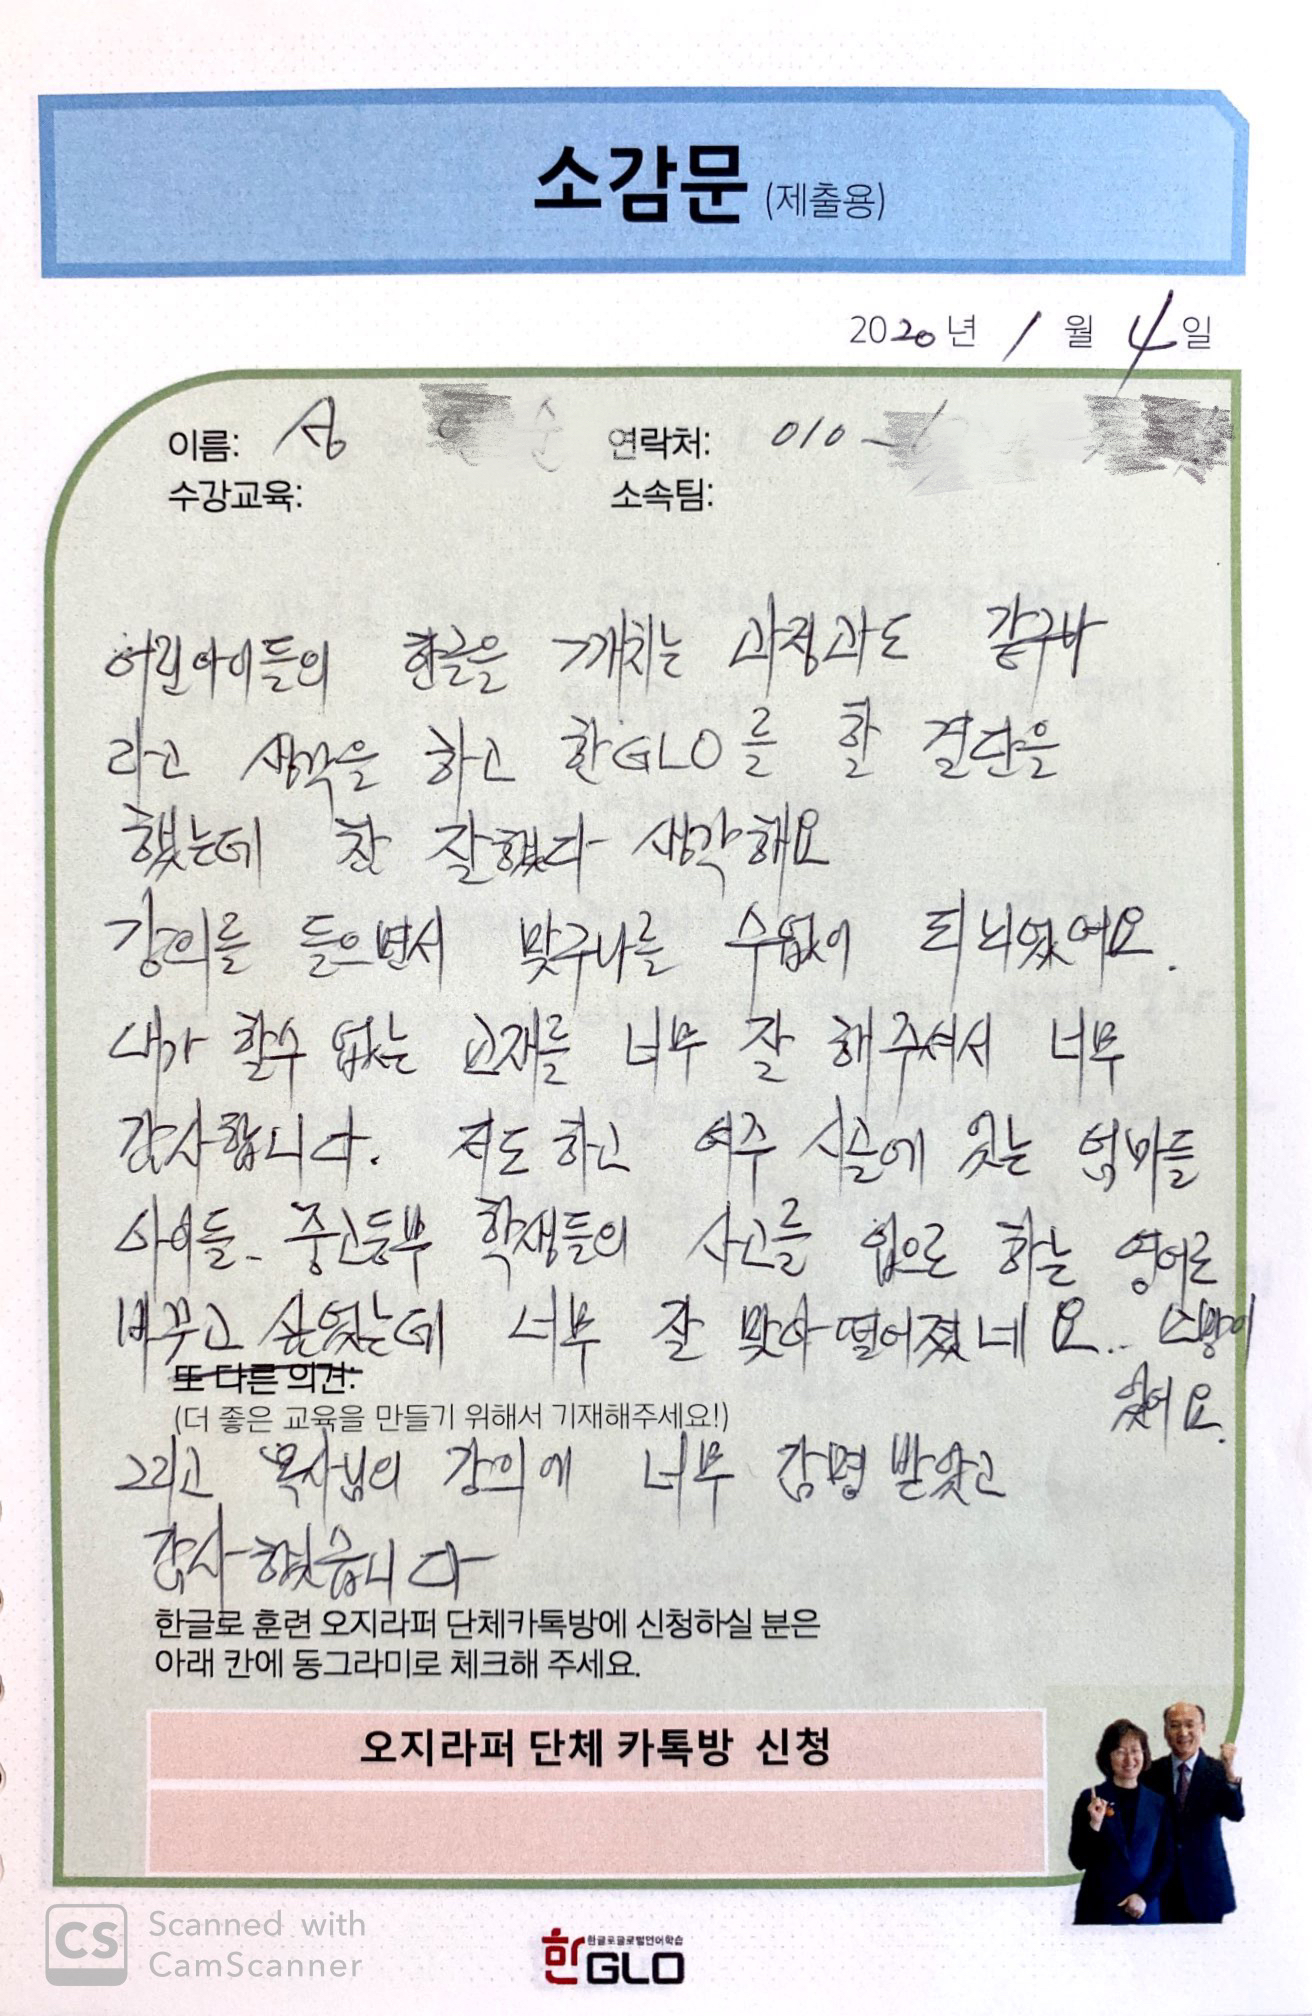 소감문 (제출용)
2020년 1월 4일
이름: 성 순 연락처: 010-
수강교육: 소속팀:
어린아이들의 한글을 깨치는 과정과도 같구나
라고 생각을 하고 한GLO를 할 결단을
했는데 참 잘했다 생각해요
강의를 들으면서 맞구나를 수없이 되뇌었어요.
내가 할수 없는 교재를 너무 잘 해주셔서 너무
감사합니다. 저도 하고 여주 시골에 있는 엄마들
아이들- 중고등부 학생들의 사고를 입으로 하는 영어로
바꾸고 싶었는데 너무 잘 맞아 떨어졌네요.. 소망이
있어요.
또 다른 의견:
(더 좋은 교육을 만들기 위해서 기재해주세요!)
그리고 목사님의 강의에 너무 감명 받았고
감사했습니다
한글로 훈련 오지라퍼 단체카톡방에 신청하실 분은
아래 칸에 동그라미로 체크해 주세요.
오지라퍼 단체 카톡방 신청
CS Scanned with
CamScanner
한글로글로벌언어학습
한GLO